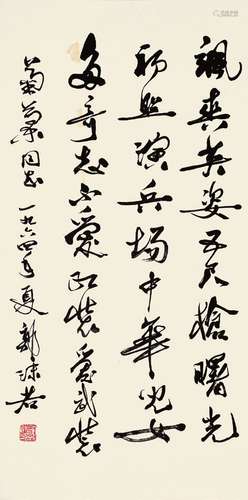 飒爽英姿五尺枪曙光
初照演兵场中华儿女
多奇志不爱红装爱武装
菊英同志 一九六四年夏 郭沫若